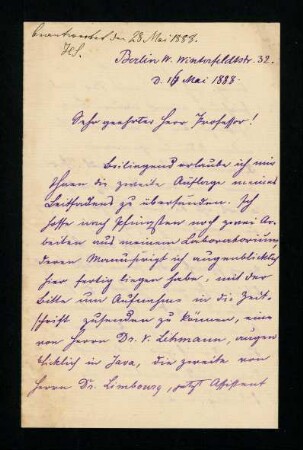 beantwortet den 23. Mai 1888.
Berlin W. Winterfeldtstr. 32.
D. 14 Mai 1888.
Sehr geehrter Herr Professor!
Beiliegend erlaube ich mir
Ihnen die zweite Auflage meines
Leitfadens zu übersenden. Ich
hoffe nach Pfingsten noch zwei Ar-
beiten aus meinem Laboratorium,
deren Manuscript ich augenblicklich
hier fertig liegen habe, mit der
Bitte um Aufnahme in die Zeit-
schrift zusenden zu können, eine
von Herrn Dr. V. Lehmann, augen
blicklich in Java, die zweite von
Herrn Dr. Limbourg, jetzt Assistent